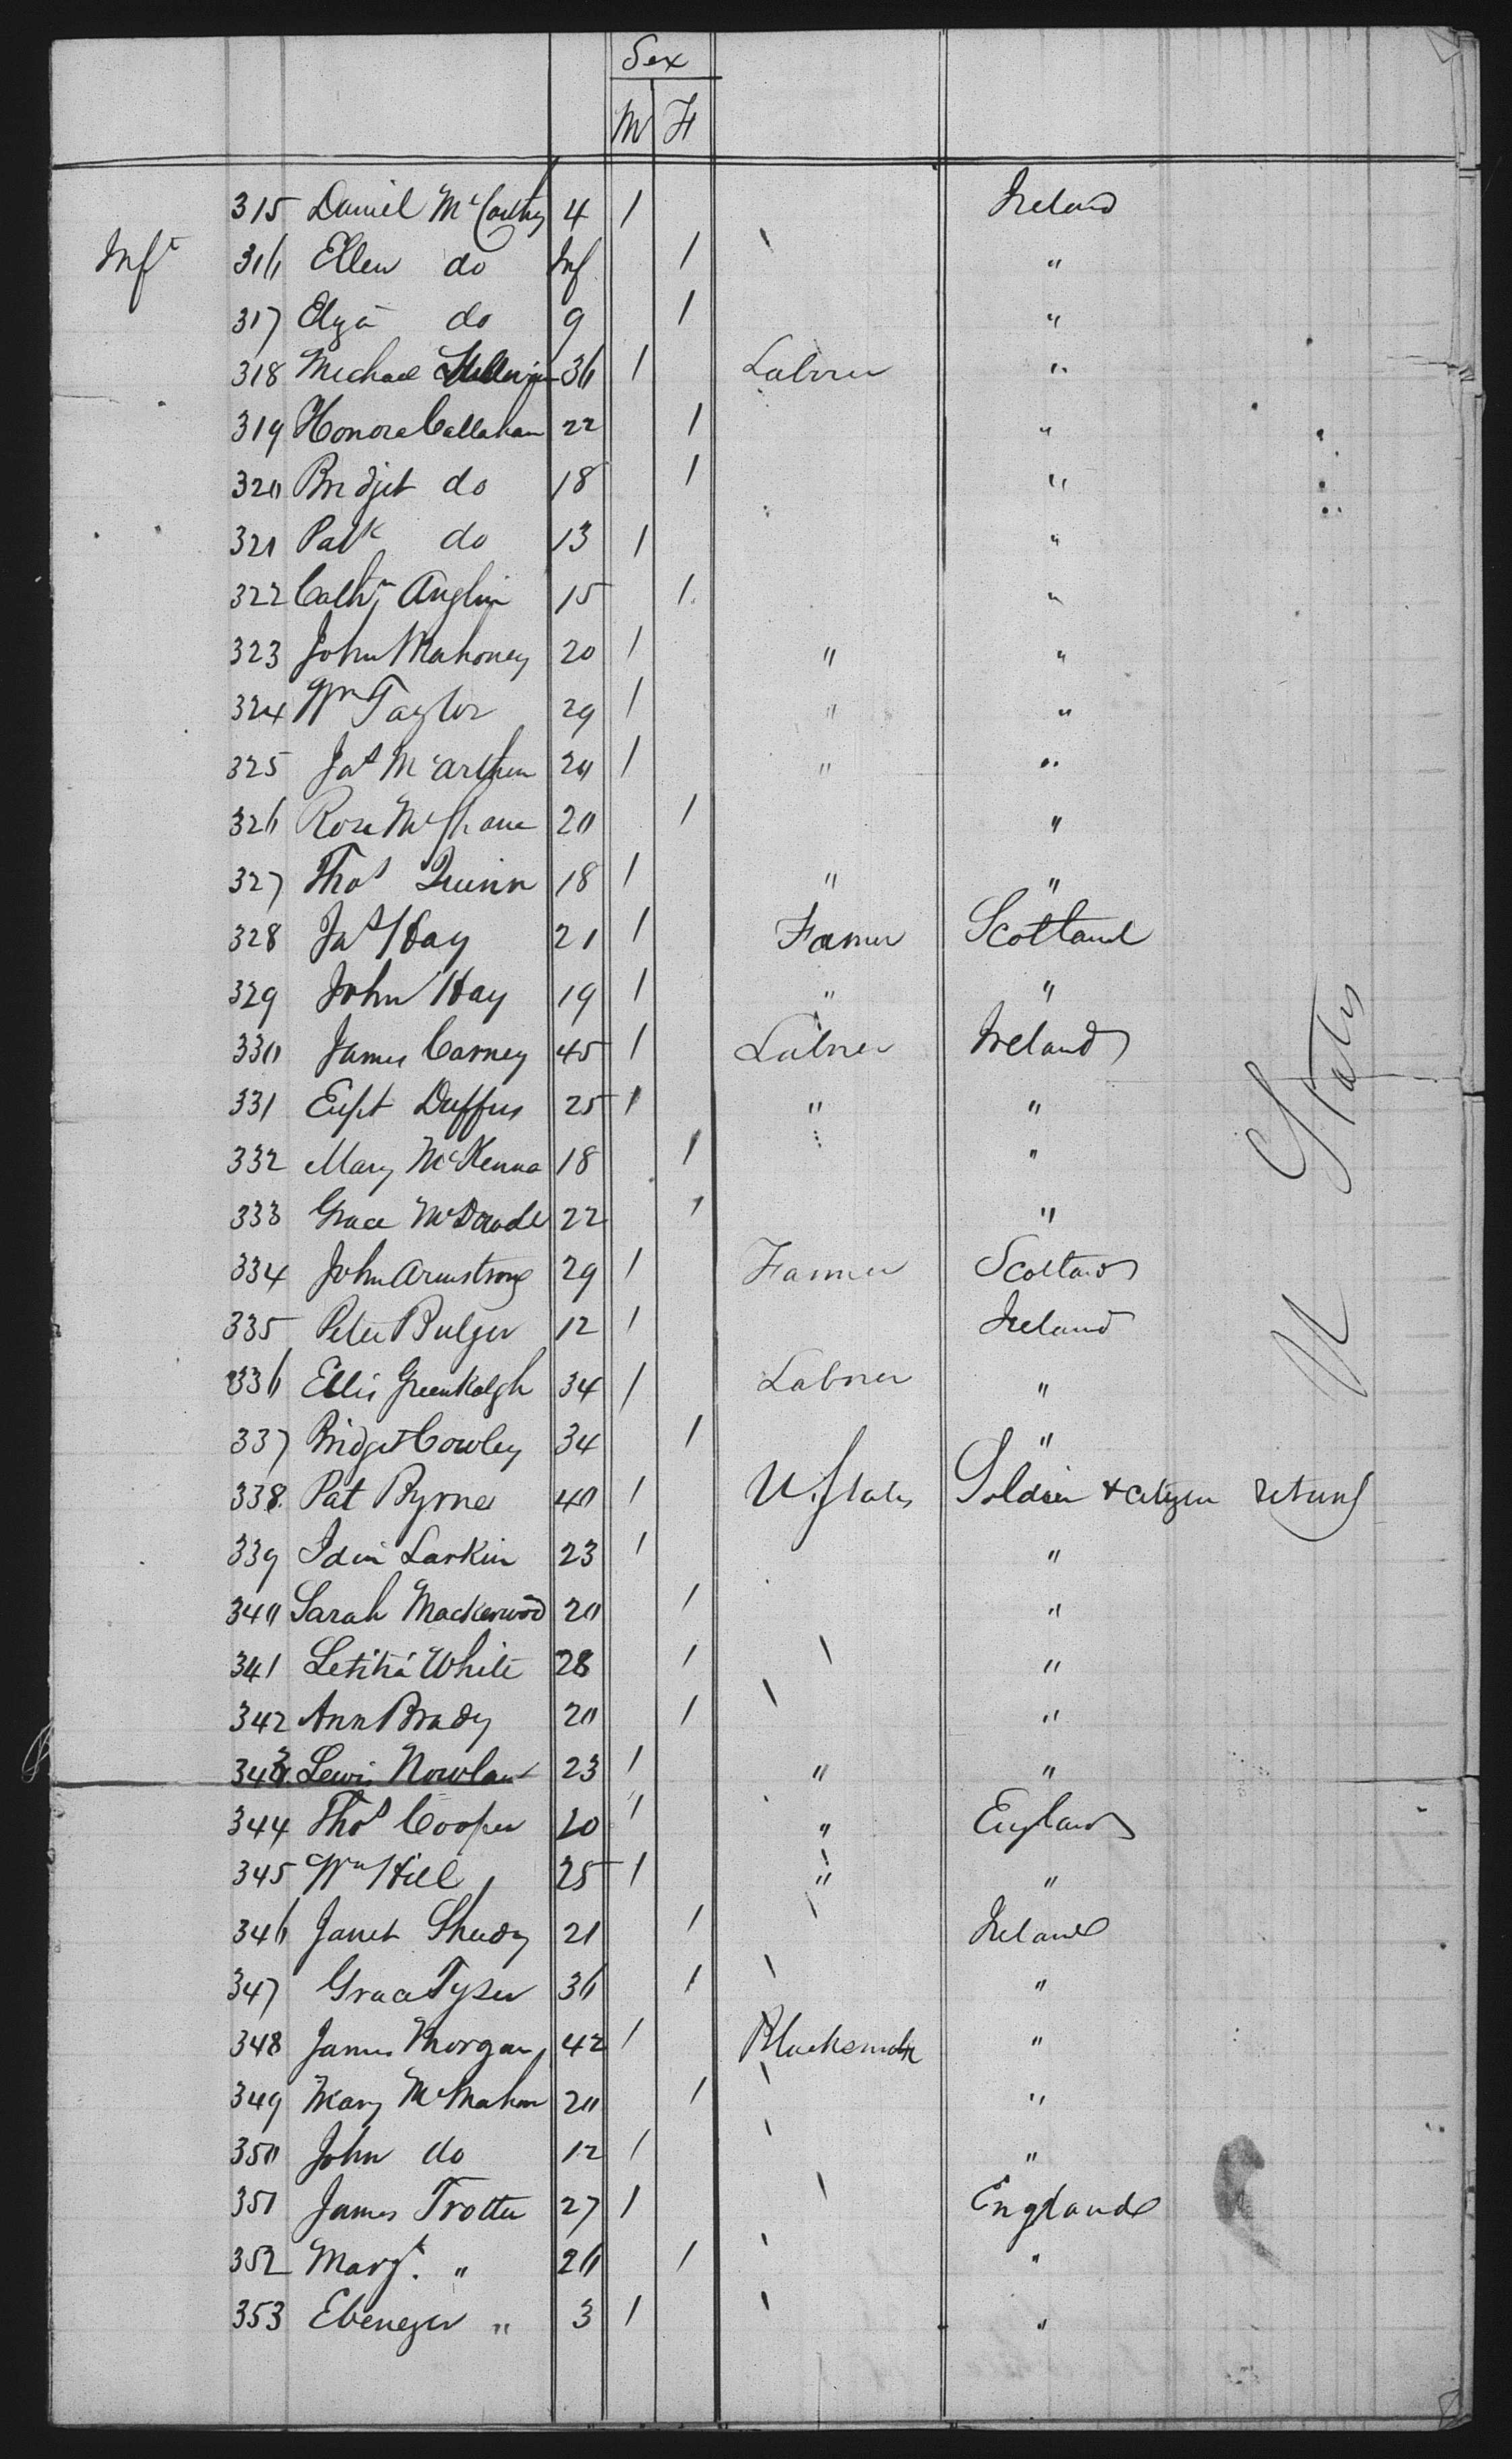 Sex
M F
315 Daniel McCarthy 4 1 Ireland
Inft 316 Ellen do Inf 1 "
317 Elza do 9 1 "
318 Michael 36 1 Laborer "
319 Honora Callahan 22 1 "
320 Bridjet do 18 1 "
321 Patk do 13 1 "
322 Cathn Anglin 15 1 "
323 John Mahoney 20 1 " "
324 Wm Taylor 29 1 " "
325 Jas McArthur 20 1 " "
326 Rose McShane 20 1 "
327 Thos Quinn 18 1 " "
328 Jas Hay 21 1 Farmer Scotland
329 John Hay 19 1 " "
330 James Carney 45 1 Laborer Ireland
331 Eupt Duffus 25 1 " "
332 Mary McKenna 18 1 "
333 Grace McDade 22 1 "
334 John Armstrong 29 1 Farmer Scotland
335 Peter Bulger 12 1 Ireland
336 Ellis Greenhalgh 34 1 Laborer "
337 Bridget Cowley 34 1 "
338 Pat Byrne 40 1 U. States Soldier & citizen returng
339 Larkin 23 1 "
340 Sarah Mackerwood 20 1 "
341 Letitia White 28 1 "
342 Ann Brady 20 1 "
343 Lewis Nowlan 23 1 " "
344 Thos Cooper 20 1 " England
345 Wm Hill 25 1 " "
346 Janet Sheedy 21 1 Ireland
347 Grace Tyser 36 1 "
348 James Morgan 42 1 Blacksmith "
349 Mary McMahon 20 1 "
350 John do 12 1 "
351 James Trotter 27 1 England
352 Margt. " 26 1 "
353 Ebenezer " 3 1 "
U States